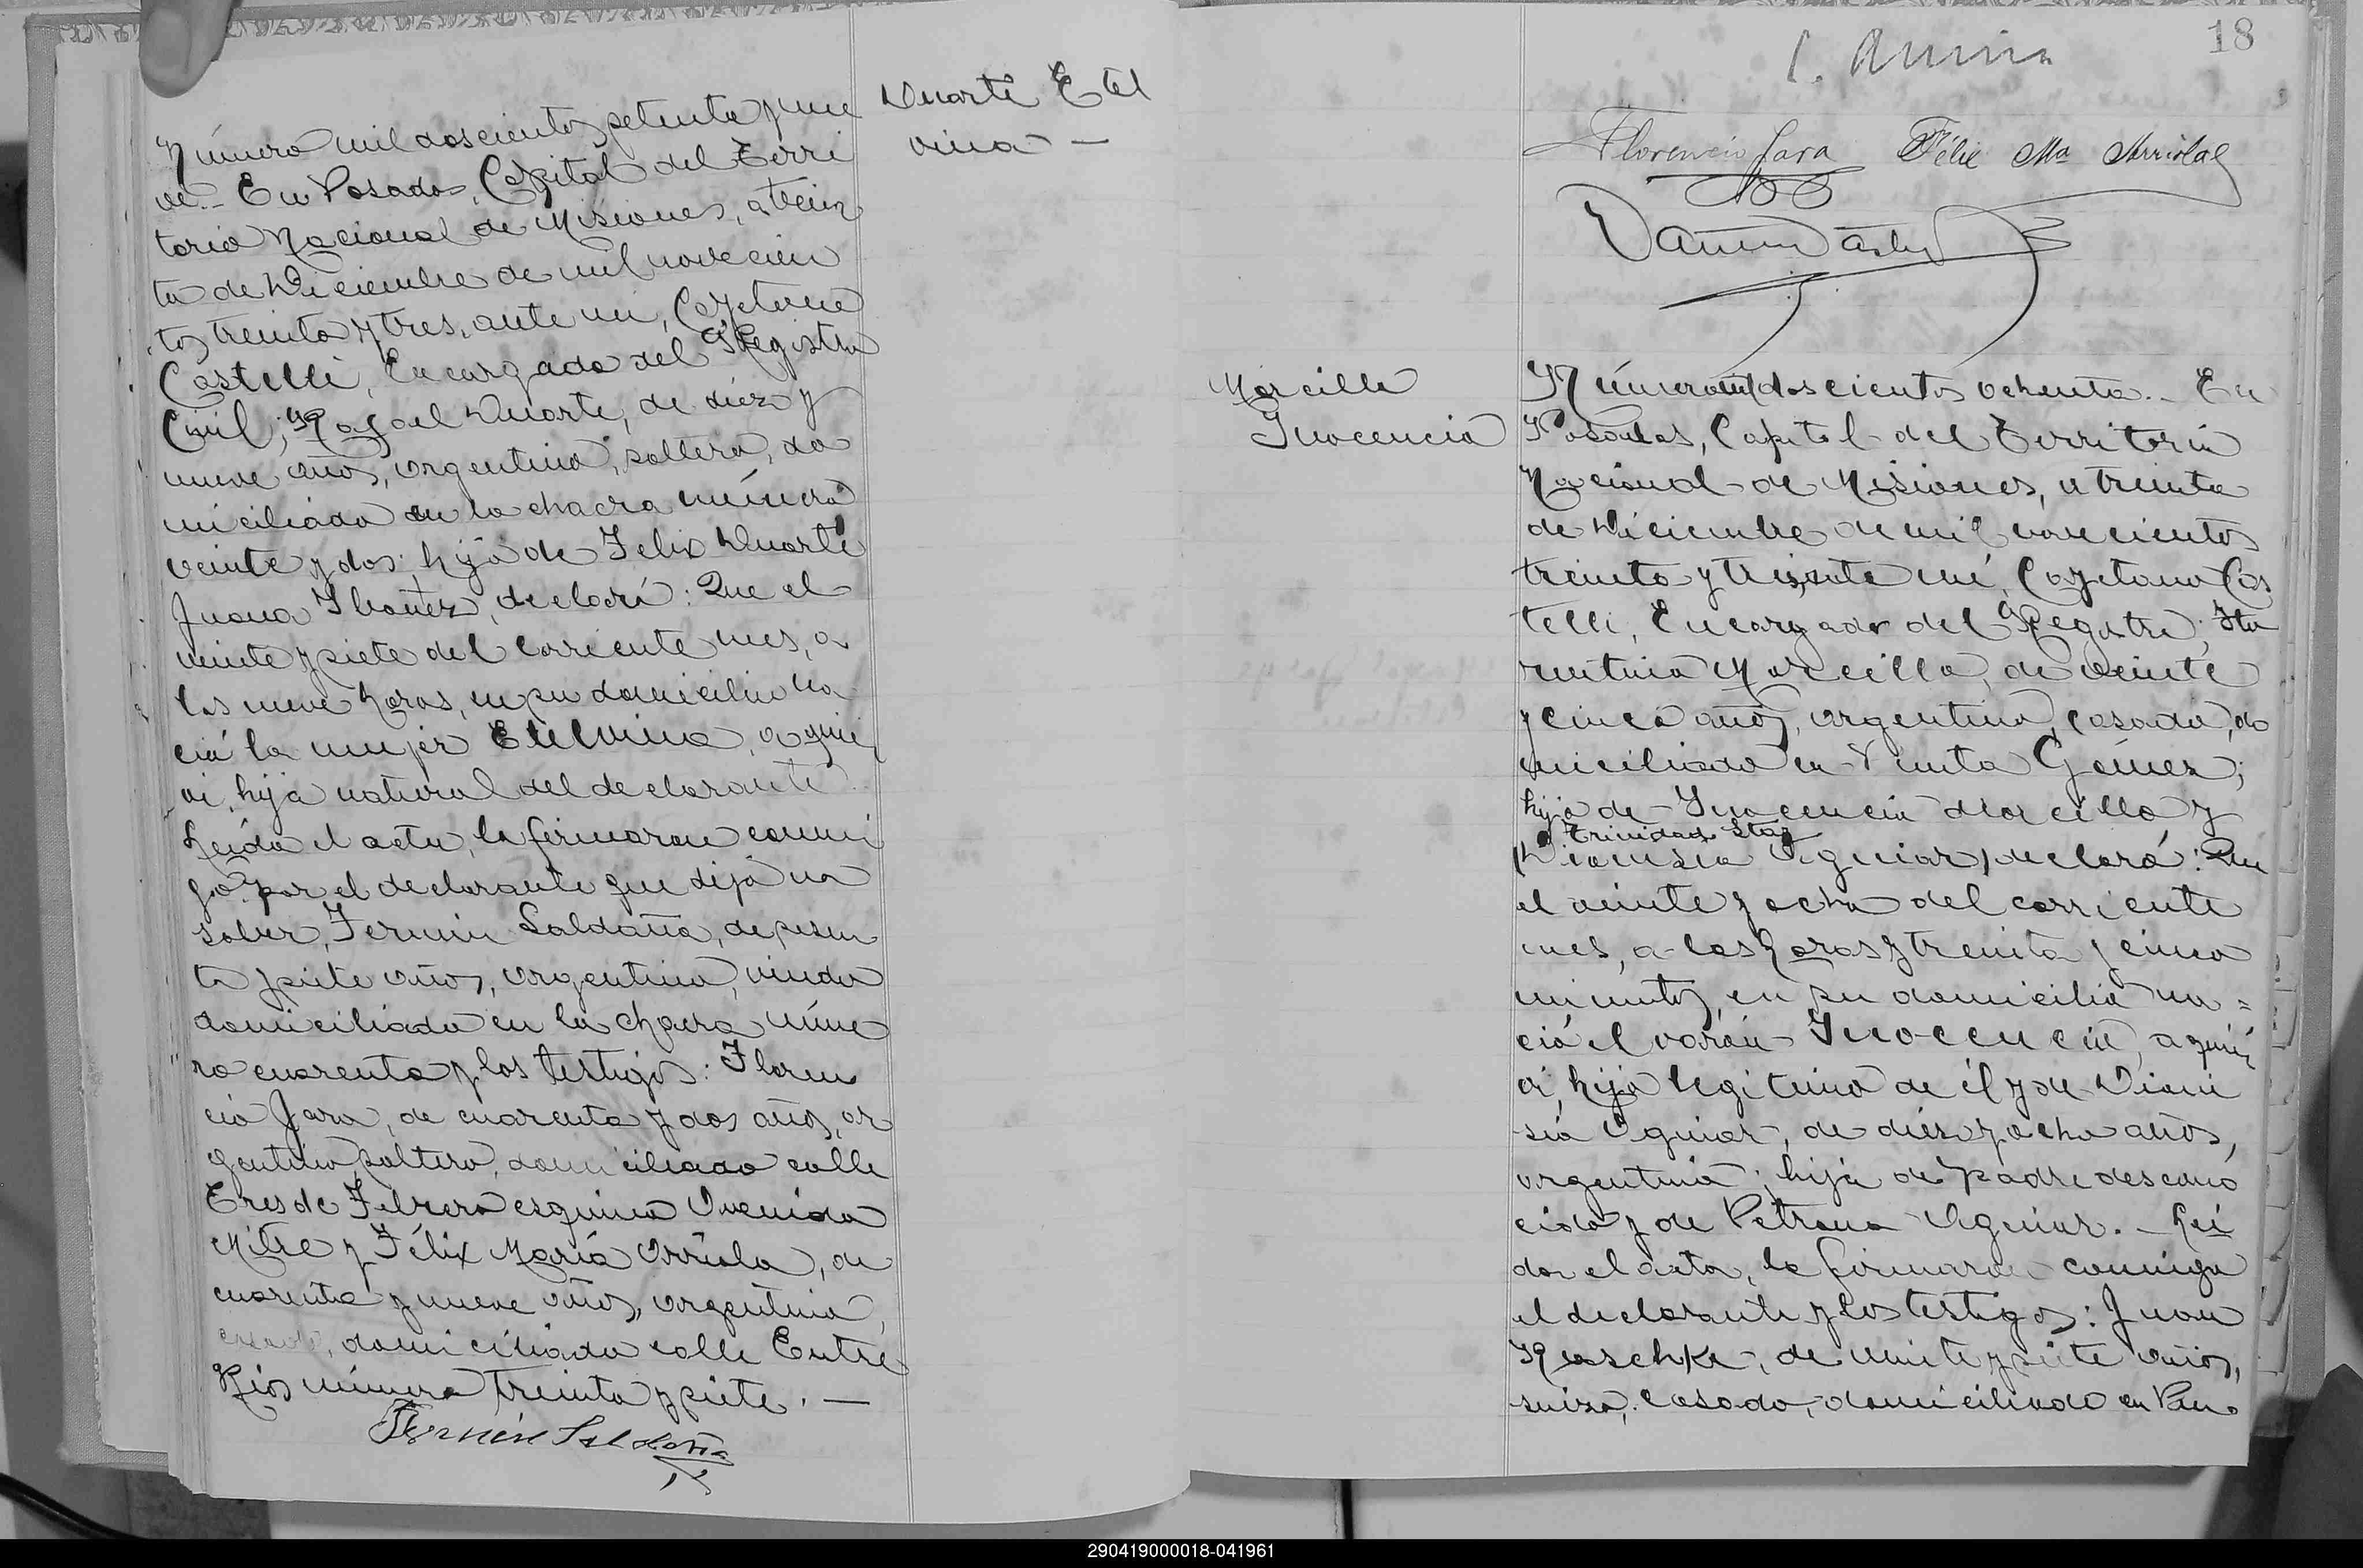 Duarte Etel
vina —
Número mil doscientos setenta y nue
ve.- En Posadas, Capital del Terri
torio Nacional de Misiones, a trein
ta de Diciembre de mil novecien
tos treinta y tres, ante mi, Cayetano
Castelli, Encargado del Registro
Civil; Rafael Duarte, de diez y
nueve años, argentino, soltero, do
miciliado en la chacra número
veinte y dos; hijo de Felix Duarte
Juana Ibañez, declaró: Que el
veinte y siete del corriente mes, a
las nueve horas, en su domicilio na
ció la mujer Etelvina, a quien
vi, hija natural del declarante.
Leida el acta, la firmaron conmi
go por el declarante que dijo no
saber, Fermin Saldaña, de sesen
ta y siete años, argentino, viudo
domiciliado en la chacra núme
ro cuarenta y los testigos: Floren
cio Jara, de cuarenta y dos años, ar
gentino, soltero, domiciliado calle
Tres de Febrero esquina Avenida
Mitre y Félix María Arriola, de
cuarenta y nueve años, argentino,
casado, domiciliado calle Entre
Rios número treinta y siete. —
Fermín Saldaña
18
Florencio Jara Félix Ma Arriola
Marcilla
Inocencio
Número mil doscientos ochenta.- En
Posadas, Capital del Territorio
Nacional de Misiones, a treinta
de Diciembre de mil novecientos
treinta y tres, ante mí, Cayetano Cas
telli, Encargado del Registro;
Marcilla, de veinte
y cinco años, argentino, casado, do
miciliado en Gómez;
hijo de Inocencio Marcilla y
Trinidad
Dionisia Aguiar, declaró: Que
el veinte y ocho del corriente
mes, a las horas y treinta y cinco
minutos, en su domicilio na=
ció el varón Inocencio, a quien
vi, hijo legítimo de él y de Dioni
sia Aguiar, de diez y ocho años,
argentina; hija de padre descono
cido y de Petrona Aguiar.- Leí
da el acta, la firmaron conmigo
el declarante y los testigos: Juan
Raschke, de veinte y siete años,
suizo, casado, domiciliado en
290419000018-041961